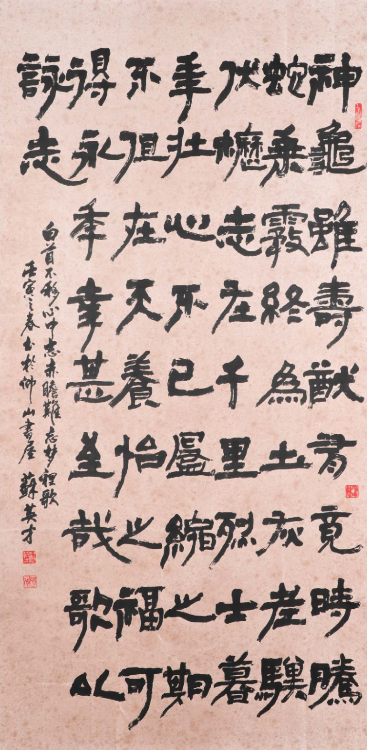 神龜雖壽猷有竟時騰
蛇乘霧終為土灰老驥
伏櫪志在千里烈士暮
年壯心不已盈縮之期
不但在天養怡之福可
得永年幸甚至哉歌以
詠志
白首不移心中志赤膽難忘歌
壬寅之春書於仰山書屋 蘇英才